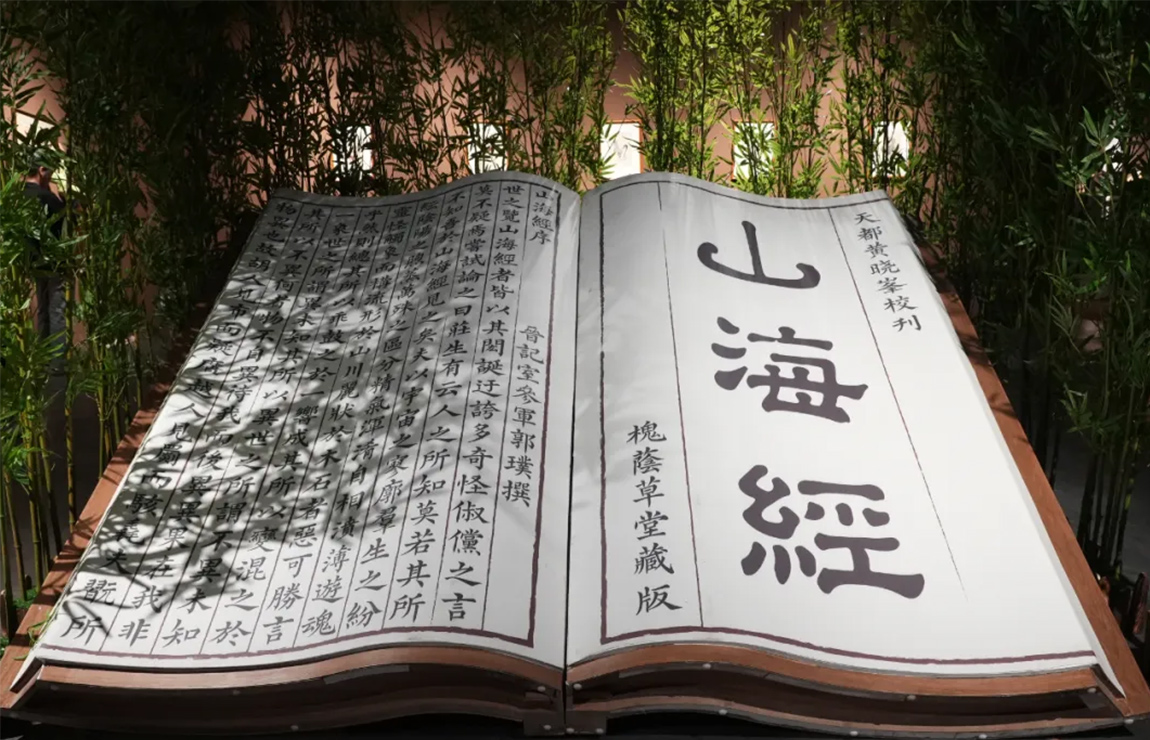 天都黄晓峯校刊
山海經
槐蔭草堂藏版
山海經序
晉記室參軍郭璞撰
世之覽山海經者皆以其閎誕迂誇多奇怪俶儻之言
莫不疑焉嘗試論之曰莊生有云人之所知莫若其所
不知吾於山海經見之矣夫以宇宙之寥廓羣生之紛
紜陰陽之煦蒸萬殊之區分精氣渾淆自相濆薄遊魂
靈怪觸象而構流形於山川麗狀於木石者惡可勝言
乎然則總其所以乖鼓之於一響成其所以變混之於
一象世之所謂異未知其所以異世之所謂不異未知
其所以不異何者物不自異待我而後異異果在我非
物異也故胡人見布而疑越人見罽而駭毳夫翫所